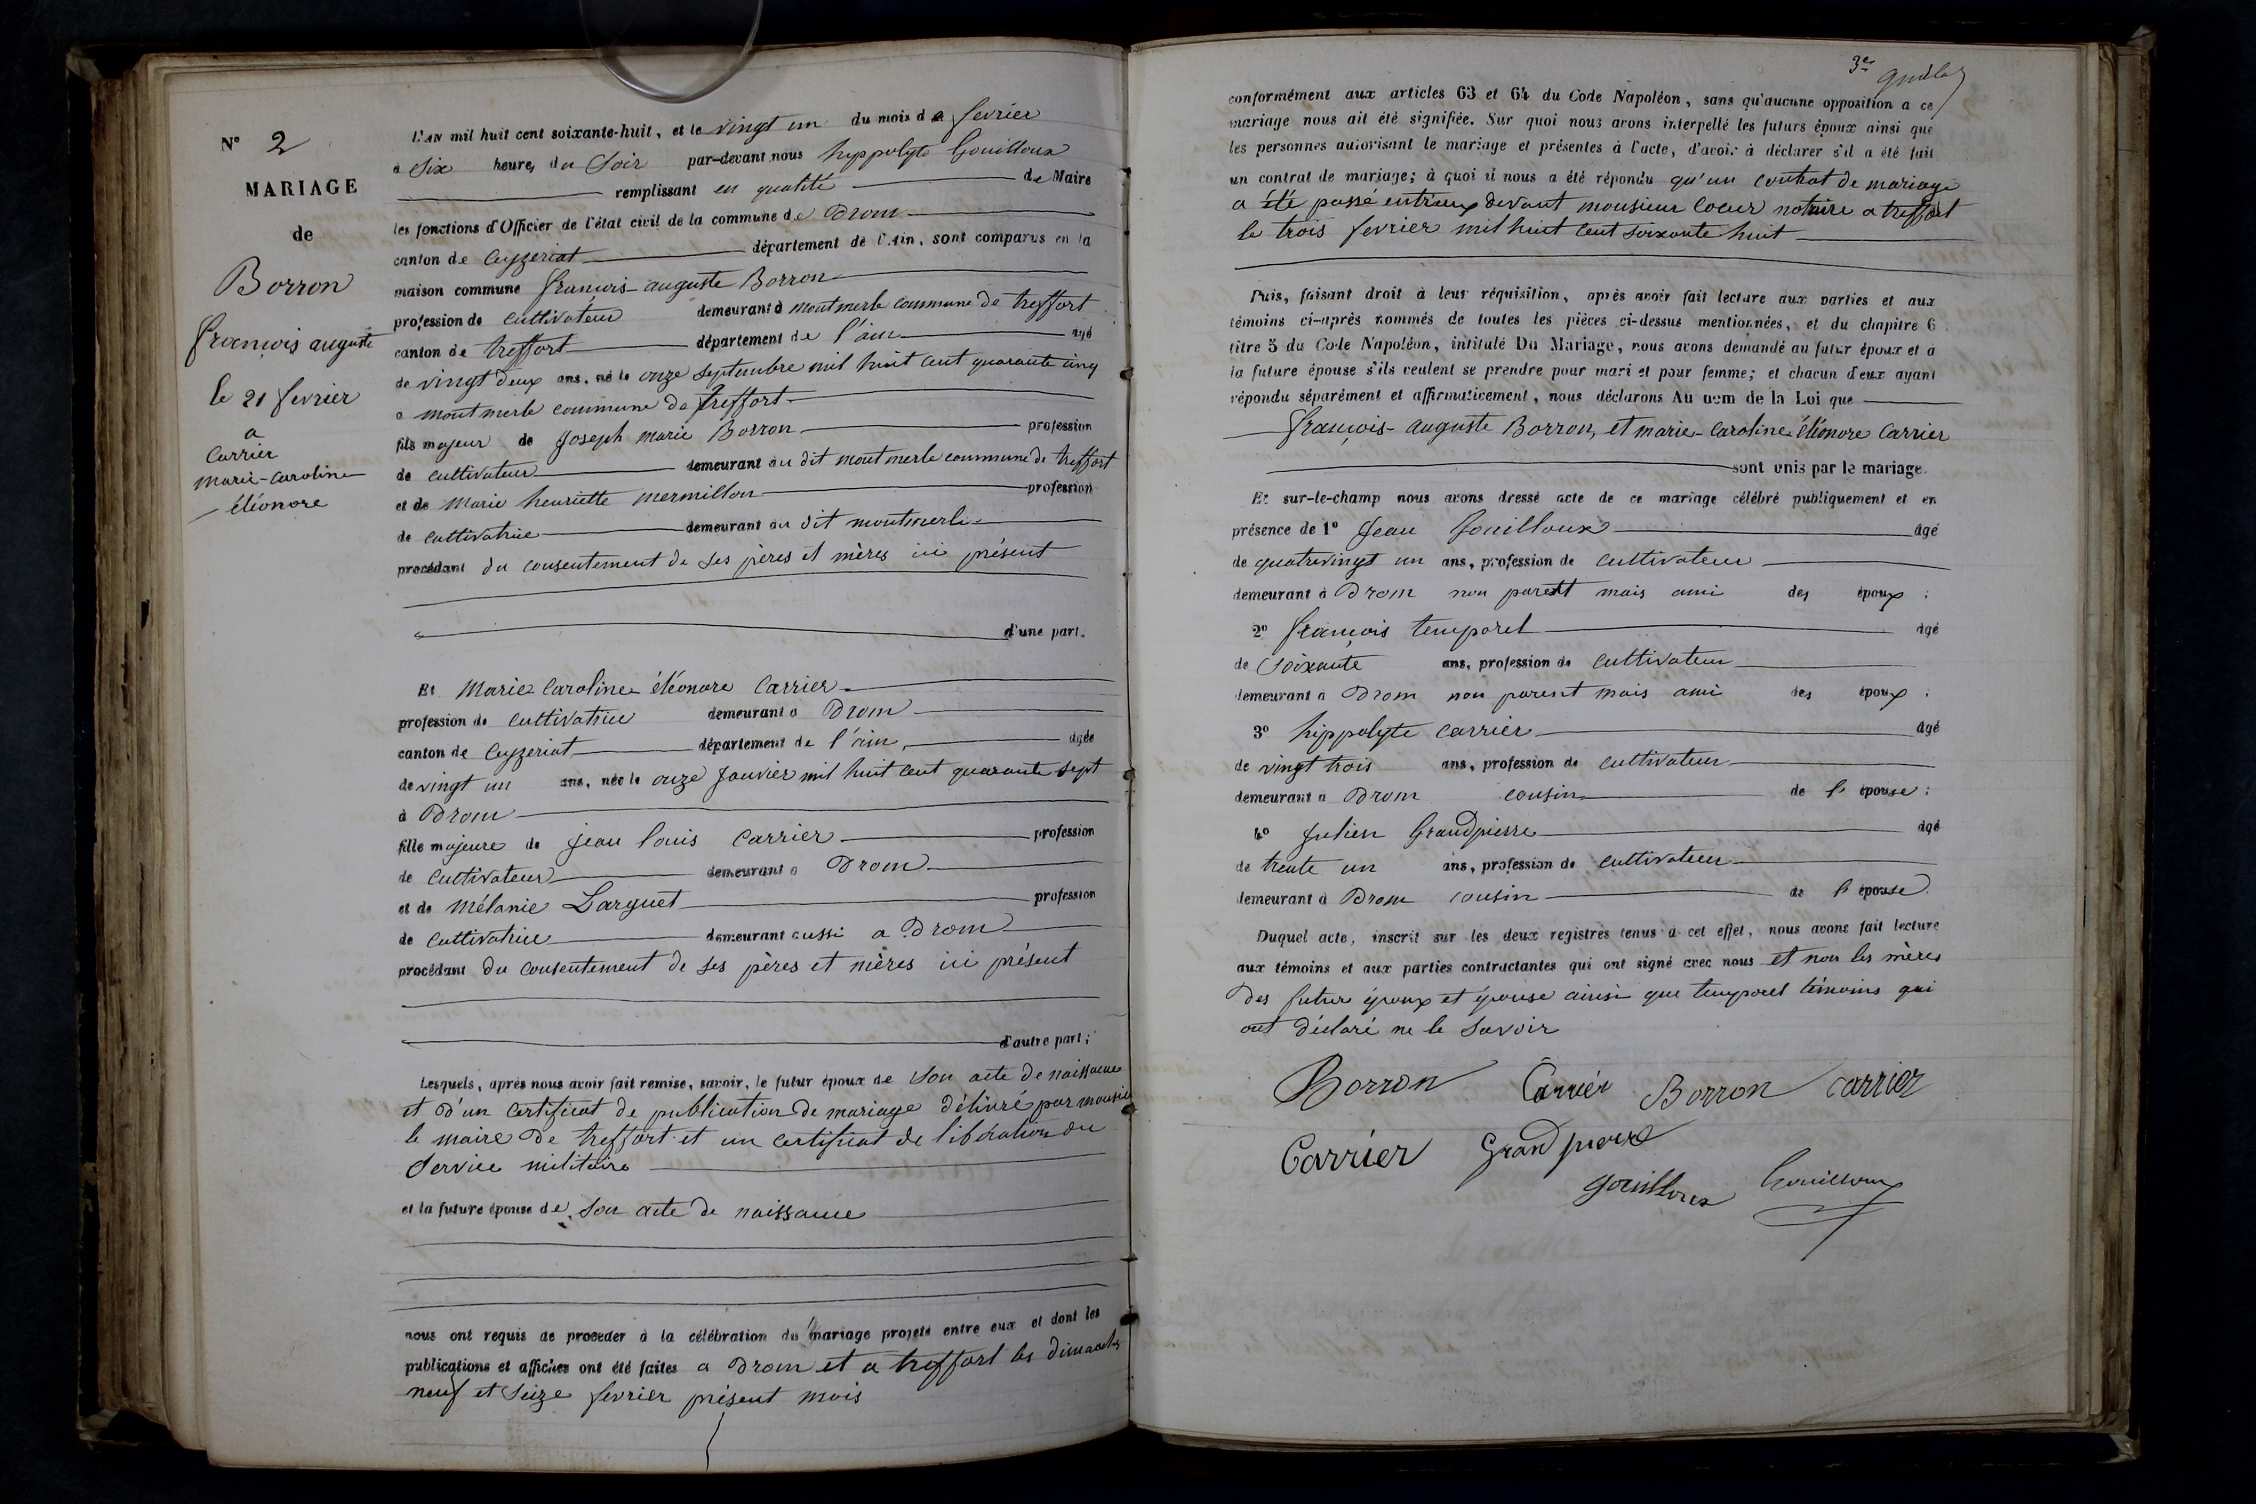 N° 2
MARIAGE
de
Borron
françois auguste
le 21 fevrier
a
Carrier
marie-caroline
éléonore
L'AN mil huit cent soixante-huit, et le vingt un du mois de fevrier
a Six heures du Soir par-devant nous hyppolyte Gouilloux
remplissant en qualité de Maire
les fonctions d'Officier de l'état civil de la commune de Drom
canton de Ceyzeriat département de l'Ain, sont comparus en la
maison commune françois-auguste Borron
profession de cultivateur demeurant à montmerle commune de treffort
canton de treffort département de l'ain agé
de vingt deux ans, né le onze septembre mil huit cent quarante cinq
a montmerle commune de treffort
fils majeur de Joseph marie Borron profession
de cultivateur demeurant au dit montmerle commune de treffort
et de Marie henriette mermillon profession
de cultivatrice demeurant au dit montmerle
procédant du consentement de ses pères et mères ici présent
d'une part.
Et Marie Caroline éléonore Carrier
profession de cultivatrice demeurant a Drom
canton de Ceyzeriat département de l'ain, agée
de vingt un ans, née le onze Janvier mil huit cent quarante sept
à Drom
fille majeure de jean louis Carrier profession
de cultivateur demeurant a Drom
et de Mélanie Larguet profession
de cultivatrice demeurant aussi a Drom
procédant du consentement de ses pères et mères ici présent
d'autre part;
Lesquels, après nous avoir fait remise, savoir, le futur époux de son acte de naissance
et d'un certificat de publication de mariage délivré par monsie
le maire de treffort et un certificat de libération du
Service militaire
et la future épouse de son acte de naissance
nous ont requis de proceder à la célébration du mariage projeté entre eux et dont les
publications et affiches ont été faites a Drom et a treffort les dimanches
neuf et Seize fevrier présent mois
3e
conformément aux articles 63 et 64 du Code Napoléon, sans qu'aucune opposition a ce
mariage nous ait été signifiée. Sur quoi nous avons interpellé les futurs époux ainsi que
les personnes autorisant le mariage et présentes à l'acte, d'avoir à déclarer s'il a été fait
un contrat de mariage; à quoi il nous a été répondu qu'un contrat de mariage
a été passé entr'eux devant monsieur Coeur notaire a treffort
le trois fevrier mil huit cent soixante huit
Puis, faisant droit à leur réquisition, après avoir fait lecture aux parties et aux
témoins ci-après nommés de toutes les pièces ci-dessus mentionnées, et du chapitre 6
titre 5 du Code Napoléon, intitulé Du Mariage, nous avons demandé au futur époux et à
la future épouse s'ils veulent se prendre pour mari et pour femme; et chacun d'eux ayant
répondu séparément et affirmativement, nous déclarons Au nom de la Loi que
françois-auguste Borron, et marie-Caroline éléonore Carrier
sont unis par le mariage.
Et sur-le-champ nous avons dressé acte de ce mariage célébré publiquement et en
présence de 1° Jean Gouilloux âgé
de quatrevingt un ans, profession de cultivateur
demeurant à Drom non parent mais ami des époux :
2° françois temporel agé
de Soixante ans, profession de cultivateur
demeurant a Drom non parent mais ami des époux :
3° hippolyte carrier âgé
de vingt trois ans, profession de cultivateur
demeurant a Drom cousin de l' épouse :
4° Julien Grandpierre agé
de trente un ans, profession de cultivateur
demeurant à Drom cousin de l' épouse.
Duquel acte, inscrit sur les deux registres tenus à cet effet, nous avons fait lecture
aux témoins et aux parties contractantes qui ont signé avec nous et non les mères
des futur époux et épouse ainsi que temporel témoins qui
ont déclaré ne le savoir
Borron Carrier Borron carrier
Carrier Grandpierre
gouilloux Gouilloux